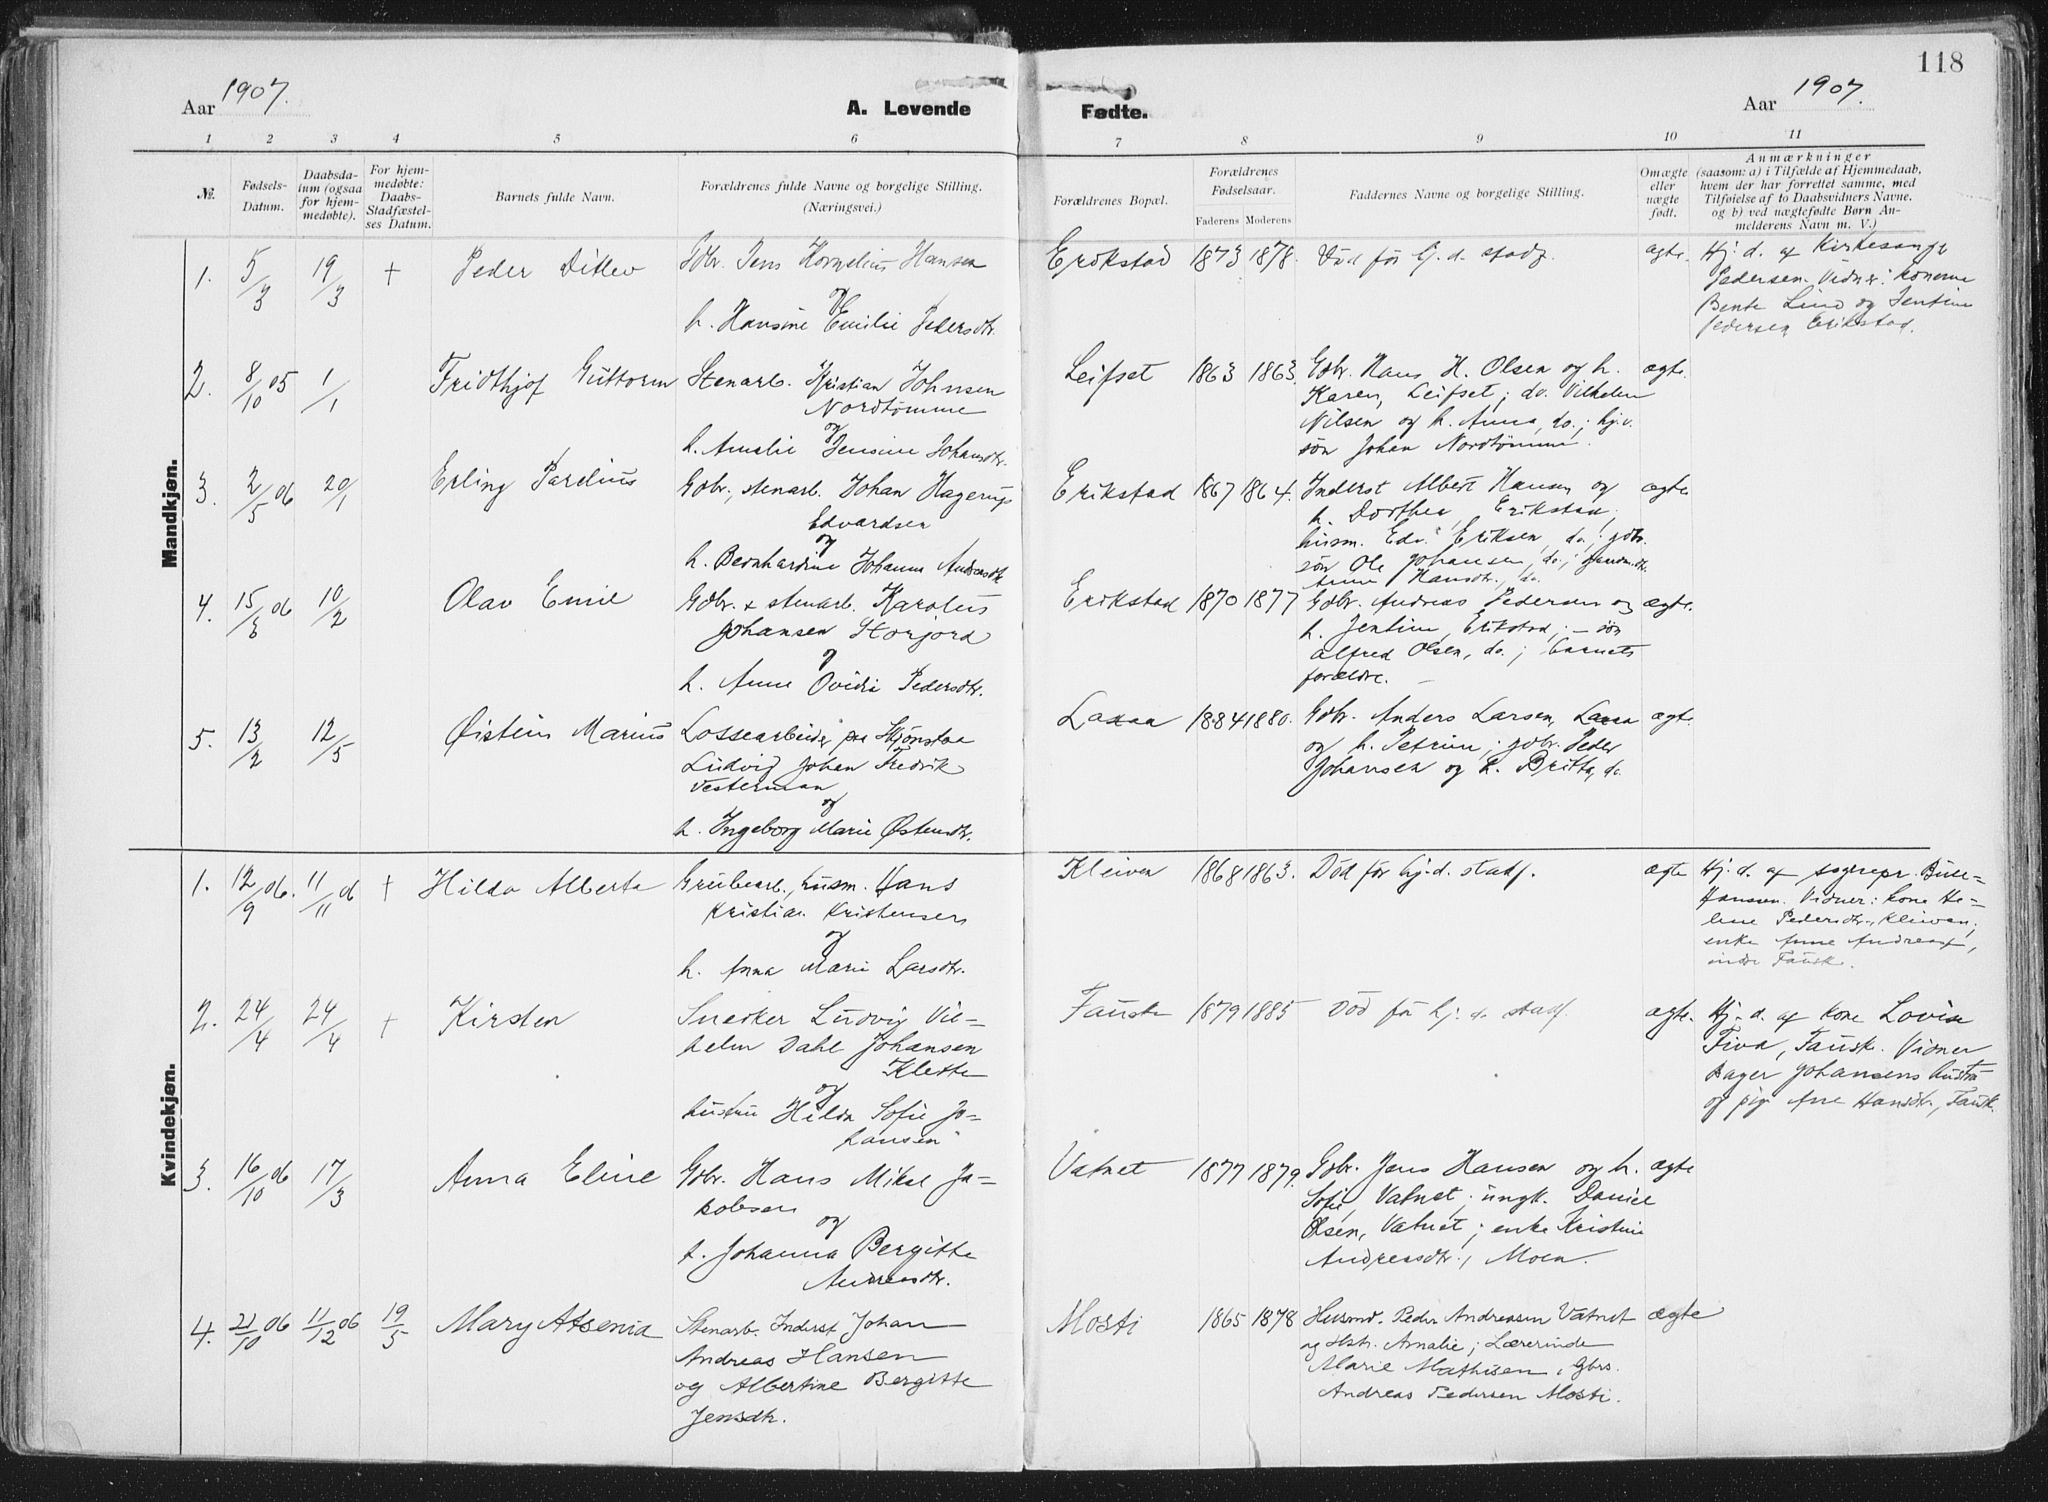 118
Aar 1907.
A. Levende Fødte.
Aar 1907.
1 2 3 4 5 6 7 8 9 10 11
№.
Fødsels-
Datum.
Daabsda-
tum (ogsaa
for hjem-
medøbte).
For hjem-
medøbte:
Daabs-
Stadfæstel-
ses Datum.
Barnets fulde Navn.
Forældrenes fulde Navne og borgelige Stilling.
(Næringsvei.)
Forældrenes Bopæl.
Forældrenes
Fødselsaar.
Faderens Moderens
Faddernes Navne og borgelige Stilling.
Omægte
eller
uægte
født.
Anmærkninger
(saasom: a) i Tilfælde af Hjemmedaab,
hvem der har forrettet samme, med
Tilføielse af to Daabsvidners Navne.
og b) ved uægtefødte Børn An-
melderens Navn m. V.)
Mandkjøn.
1. 5/3 19/3 + Peder Ditlev
Gbr. Jens Kornelius Hansen
og
h. Hansine Emilie Pedersdtr.
Erikstad 1873 1878. Död för hj. d. stadf. ægte.
Hj. d. af Kirkesanger
Pedersen. Vidner: konerne
Bente Lund og Jentine
Pedersen Erikstad.
2. 8/10 05 1/1 Fridthjof Guttorm
Stenarb. Kristian Johnsen
Nordtømme
og
h. Amalie Jensine Johansdtr.
Leifset 1863 1863.
Gbr. Hans H. Olsen og h.
Karen, Leifset; do. Vilhelm
Nilsen og h. Anna, do.; hj.v.
søn Johan Nordtømme.
ægte.
3. 2/5 06 20/1 Erling Parelius
Gbr., stenarb. Johan Hagerup
Edvardsen
og
h. Bernhardine Johanna Andreasdtr.
Erikstad 1867 1864.
Inderst Albert Hansen og
h. Dorthea, Erikstad;
husm. Edv. Eriksen, do.; gbr.
søn Ole Johansen, do.;
Anne Hansdtr., do.
ægte
4. 15/8 06 10/2 Olav Emil
Gbr. & stenarb. Karolus
Johansen Storjord
og
h. Anne Ovidia Pedersdtr.
Erikstad 1870 1877
Gbr. Andreas Pedersen og
h. Jentine, Erikstad; – søn
Alfred Olsen, do.; barnets
forældre. –
ægte.
5. 13/2 12/5 Øistein Marius
Lossearbeider paa Skjønstaa
Ludvig Johan Fredrik
Vesterman
og
h. Ingeborg Marie Østensdtr.
Laxaa 1884 1880.
Gbr. Anders Larsen, Laxaa
og h. Petrine; gbr. Peder
Johansen og h. Britta, do.
ægte.
Kvindekjøn.
1. 12/9 06. 11/11 06 + Hilda Alberta
Grubearb., husm. Hans
Kristian Kristensen
og
h. Anna Marie Larsdtr.
Kleiven 1868 1863. Död för hj. d. stadf. ægte
Hj. d. af sognepr. Buse-
Hanssen. Vidner: kone He-
line Pedersdtr., Kleiven;
enke Anne Andreas,
indre Fausk.
2. 24/4 24/4 + Kirsten
Snedker Ludvig Vil-
helm Dahl Johansen
Klette
og
hustru Hilda Sofie Jo-
hansen
Fauske 1879 1885 Död för hj. d. stadf. ægte.
Hj. d. af kone Lovise
Fiva, Fausk. Vidner
Bager Johansens hustru
og pige Ane Hansdtr., Fausk.
3. 16/10 06 17/3 Anna Eline
Gbr. Hans Mikal Ja-
kobsen
og
h. Johanna Bergitte
Andreasdtr.
Vatnet 1877 1879.
Gbr. Jens Hansen og h.
Sofie, Vatnet; ungk. Daniel
Olsen, Vatnet; enke Kristine
Andreasdtr., Moen.
ægte
4. 21/10 06 11/12 06 19/5 Mary Atsenia
Stenarb. Inderst Johan
Andreas Hansen
og Albertine Bergitte
Jensdtr.
Mosti 1865 1878
Husmd. Peder Andreassen Vatnet
og Hstr. Amalie; Lærerinde
Marie Mathisen, Gbrs.
Andreas Pedersen Mosti.
ægte